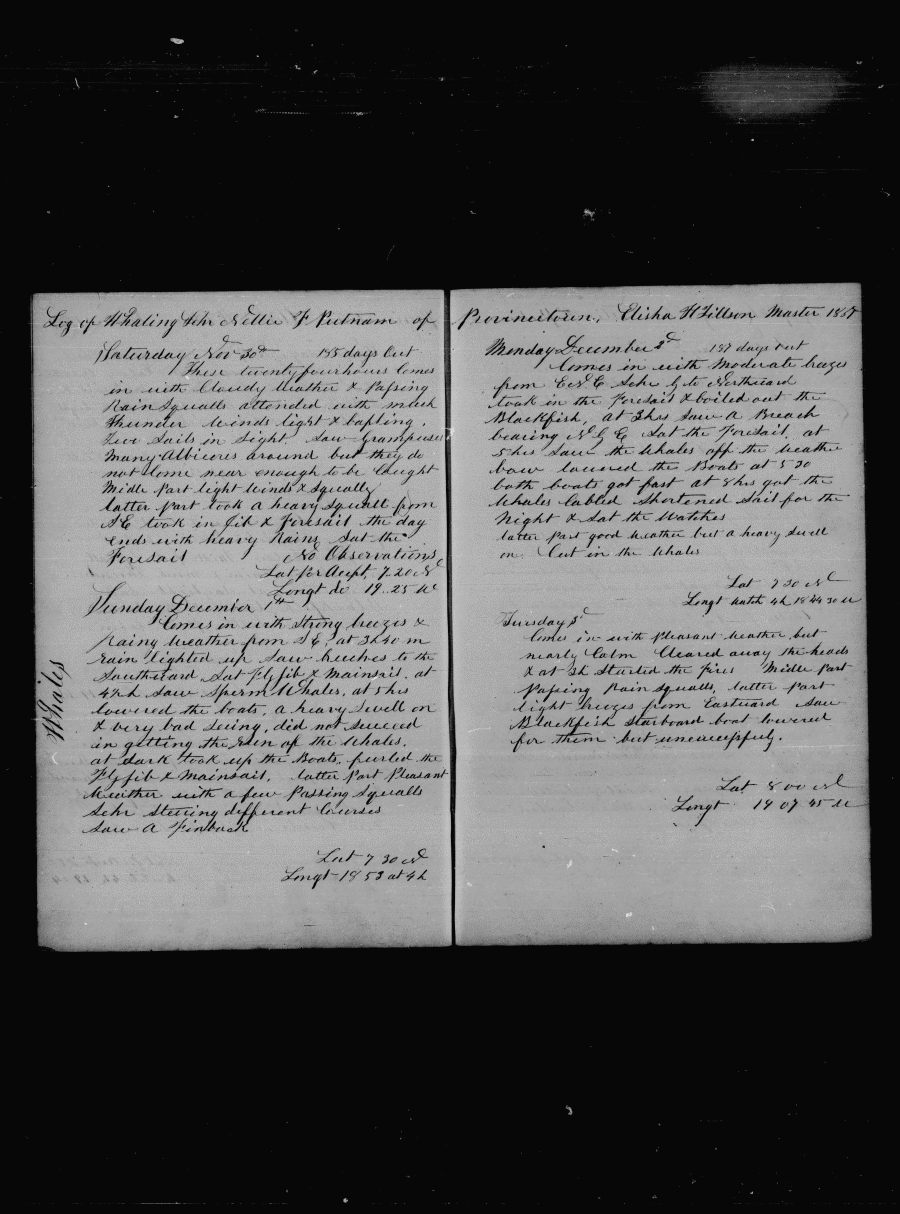 Log of Whaling Schr Nellie F Putnam of
Saturday Nov 30th 185 days Out
These twenty four hours Comes
in with Cloudy Weather & Passing
Rain Squalls attended with much
Thunder Winds light & baffling.
Two Sails in Sight. Saw Grampuses
Many Albicores around but they do
not Come near enough to be Caught
Midle Part light Winds & Squally
latter Part took a heavy Squall from
SE took in Jib & Foresail the day
Ends with heavy Rains Sat the
Foresail No Observations
Lat Per Acopt, 7.20 N
Longt do 19..25 W
Sunday December 1th
Comes in with Strong breezes &
Rainy Weather from SE, at 3h 40 m
rain lighted up Saw breches to the
Southward Sat Fly jib & Mainsail, at
4½h Saw Sperm Whales, at 5 hrs
lowered the boats, a heavy Swell on
& very bad Seeing, did not Succeed
in getting the run of the Whales.
at dark took up the Boats, furled the
Fly jib & Mainsail, latter Part Pleasant
Weather with a few Passing Squalls
Schr Steering different Courses
Saw A Finback
Lat 7 30 N
Longt 18 53 at 4h
Whales
Provincetown, Elisha H Tillson Master 1867
Monday December 2d 187 days Out
Comes in with Moderate breezes
from ENE Schr to Northward
took in the Foresail & boiled out the
Blackfish, at 3 hrs Saw A Breach
bearing Sat the Foresail, at
5 hrs Saw the Whales off the Weather
bow lowered the Boats at 5 30
both boats got fast at 8 hrs got the
Whales Cabled Shortened Sail for the
Night & Sat the Watches
latter Part good Weather but a heavy Swell
on. Cut in the Whales
Lat 7 30 N
Longt Watch 4h 18 44 30 W
Tuesday 3d
Comes in with Pleasant Weather but
nearly Calm Cleared away the heads
& at 3h Started the Fires Midle Part
Passing Rain Squalls, latter Part
light breezes from Eastward Saw
Blackfish Starboard boat lowered
for them but unsucessfuly.
Lat 8 00 N
Longt 19 07 45 W